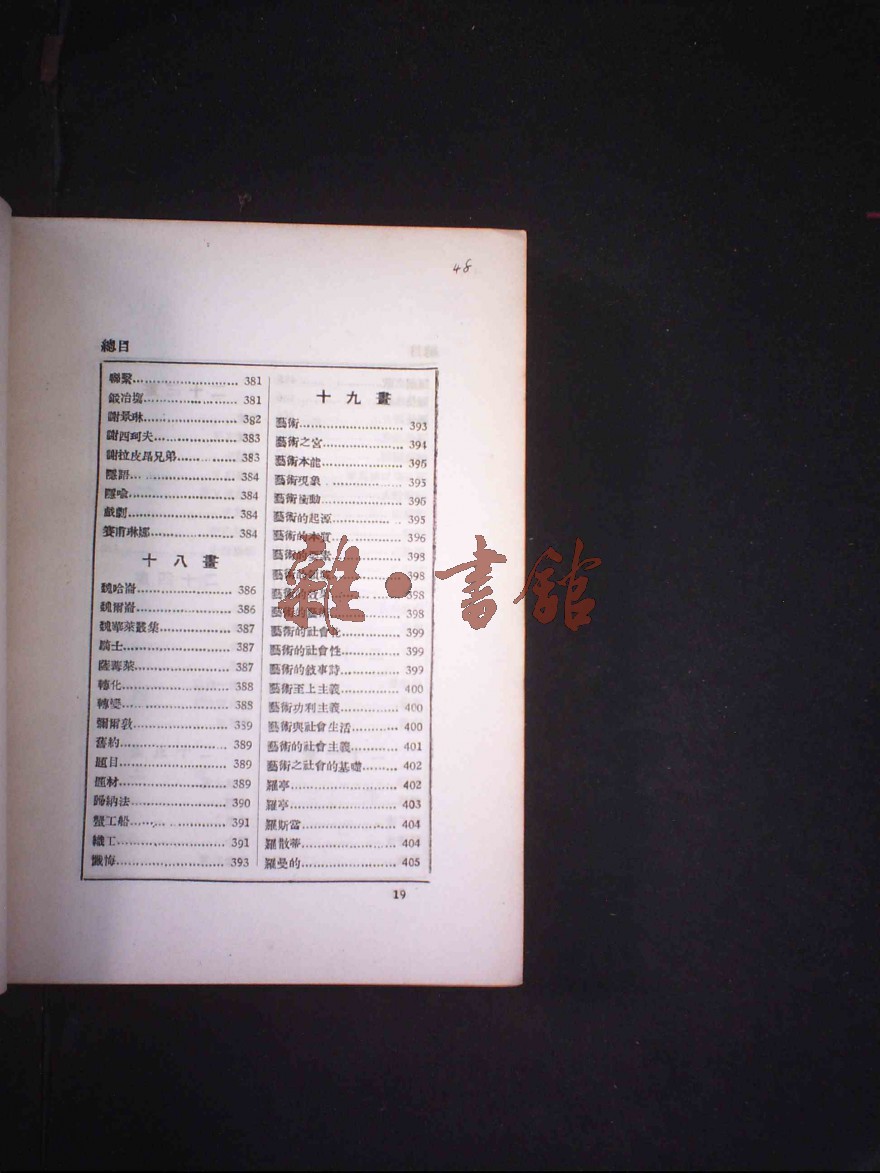 48
總目
聯繫 381
鍛冶場 381
謝景琳 382
謝四珂夫 383
謝拉皮昂兄弟 383
隱語 384
隱喻 384
戲劇 384
賽甫琳娜 384
十八畫
魏哈崙 386
魏爾崙 386
魏寧萊叢集 387
騎士 387
薩 萊 387
轉化 388
轉變 388
彌爾敦 389
舊約 389
題目 389
題材 389
歸納法 390
蟹工船 391
織工 391
懺悔 393
十九畫
藝術 393
藝術之宮 394
藝術本能 395
藝術現象 395
藝術衝動 395
藝術的起源 395
藝術的本質 396
藝術的 398
藝術 398
藝術的 398
藝術的 398
藝術的社會化 399
藝術的社會性 399
藝術的敘事詩 399
藝術至上主義 400
藝術功利主義 400
藝術與社會生活 400
藝術的社會主義 401
藝術之社會的基礎 402
羅亭 402
羅亭 403
羅斯當 404
羅散蒂 404
羅曼的 405
19
雜·書館